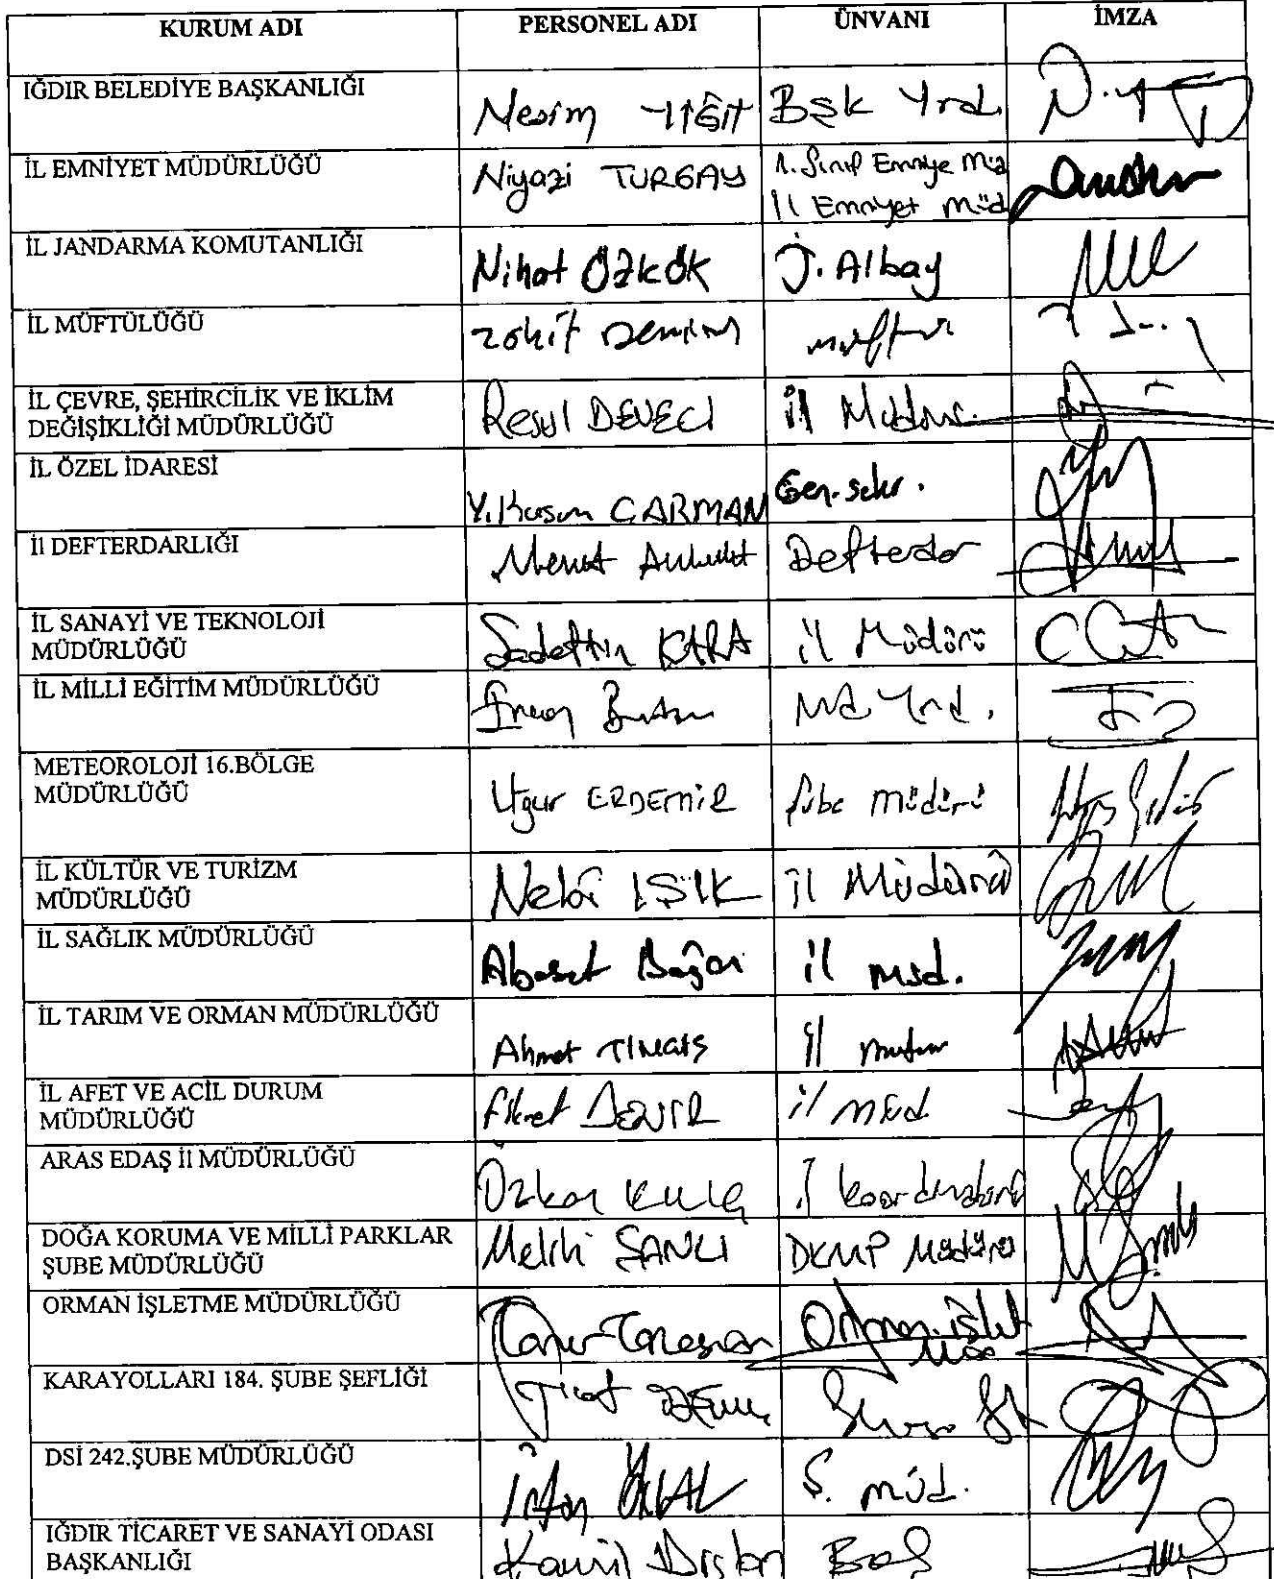 KURUM ADI PERSONEL ADI ÜNVANI İMZA
IĞDIR BELEDİYE BAŞKANLIĞI
Mesim YİĞİT Bşk Yrd.
İL EMNİYET MÜDÜRLÜĞÜ
Niyazi TURGAY 1. Sınıf Emniye Müd
İl Emniyet Müd
İL JANDARMA KOMUTANLIĞI
Nihat Özkök J. Albay
İL MÜFTÜLÜĞÜ
müftü
İL ÇEVRE, ŞEHİRCİLİK VE İKLİM
DEĞİŞİKLİĞİ MÜDÜRLÜĞÜ
Resul DEVECİ İl Müdürü
İL ÖZEL İDARESİ
Y. Kasım CARMAN Gen. sekr.
İl DEFTERDARLIĞI
Defterdar
İL SANAYİ VE TEKNOLOJİ
MÜDÜRLÜĞÜ
Sadettin KARA il Müdürü
İL MİLLİ EĞİTİM MÜDÜRLÜĞÜ
Md Yrd.
METEOROLOJİ 16.BÖLGE
MÜDÜRLÜĞÜ
Uğur ERDEMİR Şube müdürü
İL KÜLTÜR VE TURİZM
MÜDÜRLÜĞÜ
Nebi IŞIK il Müdürü
İL SAĞLIK MÜDÜRLÜĞÜ
il müd.
İL TARIM VE ORMAN MÜDÜRLÜĞÜ
Ahmet il
İL AFET VE ACİL DURUM
MÜDÜRLÜĞÜ
Fikret DEMİR il müd
ARAS EDAŞ İl MÜDÜRLÜĞÜ
Özkan KILIÇ İl koordinatörü
DOĞA KORUMA VE MİLLİ PARKLAR
ŞUBE MÜDÜRLÜĞÜ
Melih ŞANLI DKMP Müdürü
ORMAN İŞLETME MÜDÜRLÜĞÜ
Orman İşlet
Müd
KARAYOLLARI 184. ŞUBE ŞEFLİĞİ
DSİ 242.ŞUBE MÜDÜRLÜĞÜ
İrfan Ş. müd.
IĞDIR TİCARET VE SANAYİ ODASI
BAŞKANLIĞI
Kamil Arslan Baş